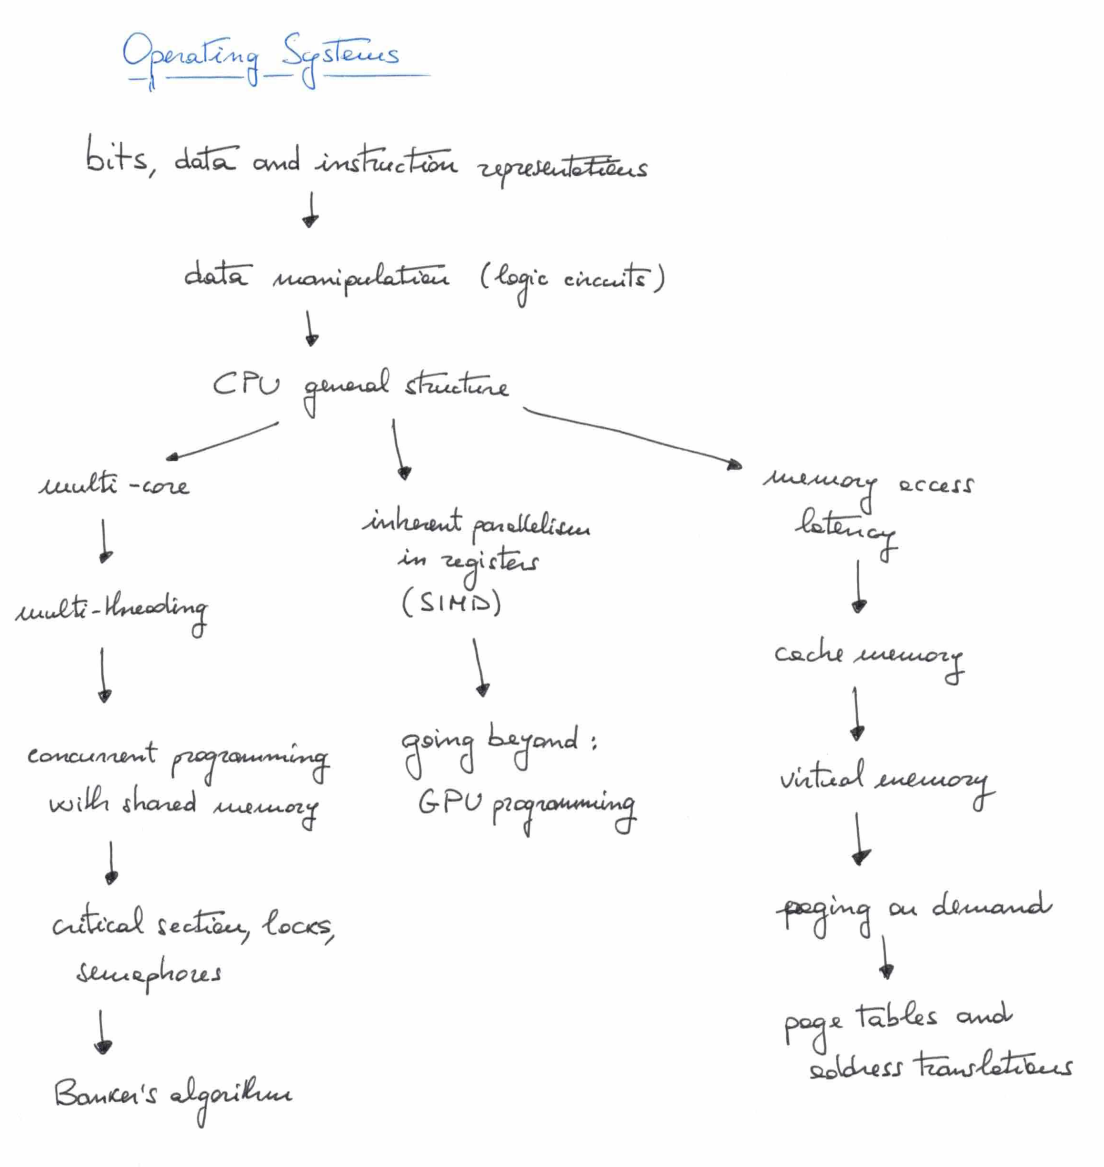 Operating Systems
bits, data and instruction representations
data manipulation (logic circuits)
CPU general structure
multi-core
multi-threading
concurrent programming
with shared memory
critical section, locks,
semaphores
Banker's algorithm
inherent parallelism
in registers
(SIMD)
going beyond:
GPU programming
memory access
latency
cache memory
virtual memory
paging on demand
page tables and
address translations